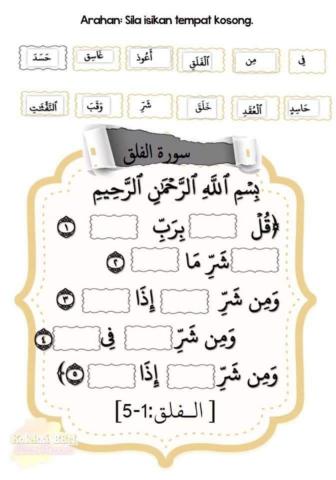 Arahan: Sila isikan tempat kosong.
فِى مِن ٱلْفَلَقِ أَعُوذُ غَاسِقٍ حَسَدَ
حَاسِدٍ ٱلْعُقَدِ خَلَقَ شَرِّ وَقَبَ ٱلنَّفَّـٰثَـٰتِ
سورة الفلق
بِسْمِ ٱللَّهِ ٱلرَّحْمَـٰنِ ٱلرَّحِيمِ
﴿قُلْ بِرَبِّ ١
شَرِّ مَا ٢
وَمِن شَرِّ إِذَا ٣
وَمِن شَرِّ فِى ٤
وَمِن شَرِّ إِذَا ٥﴾
[الـفلق:1-5]